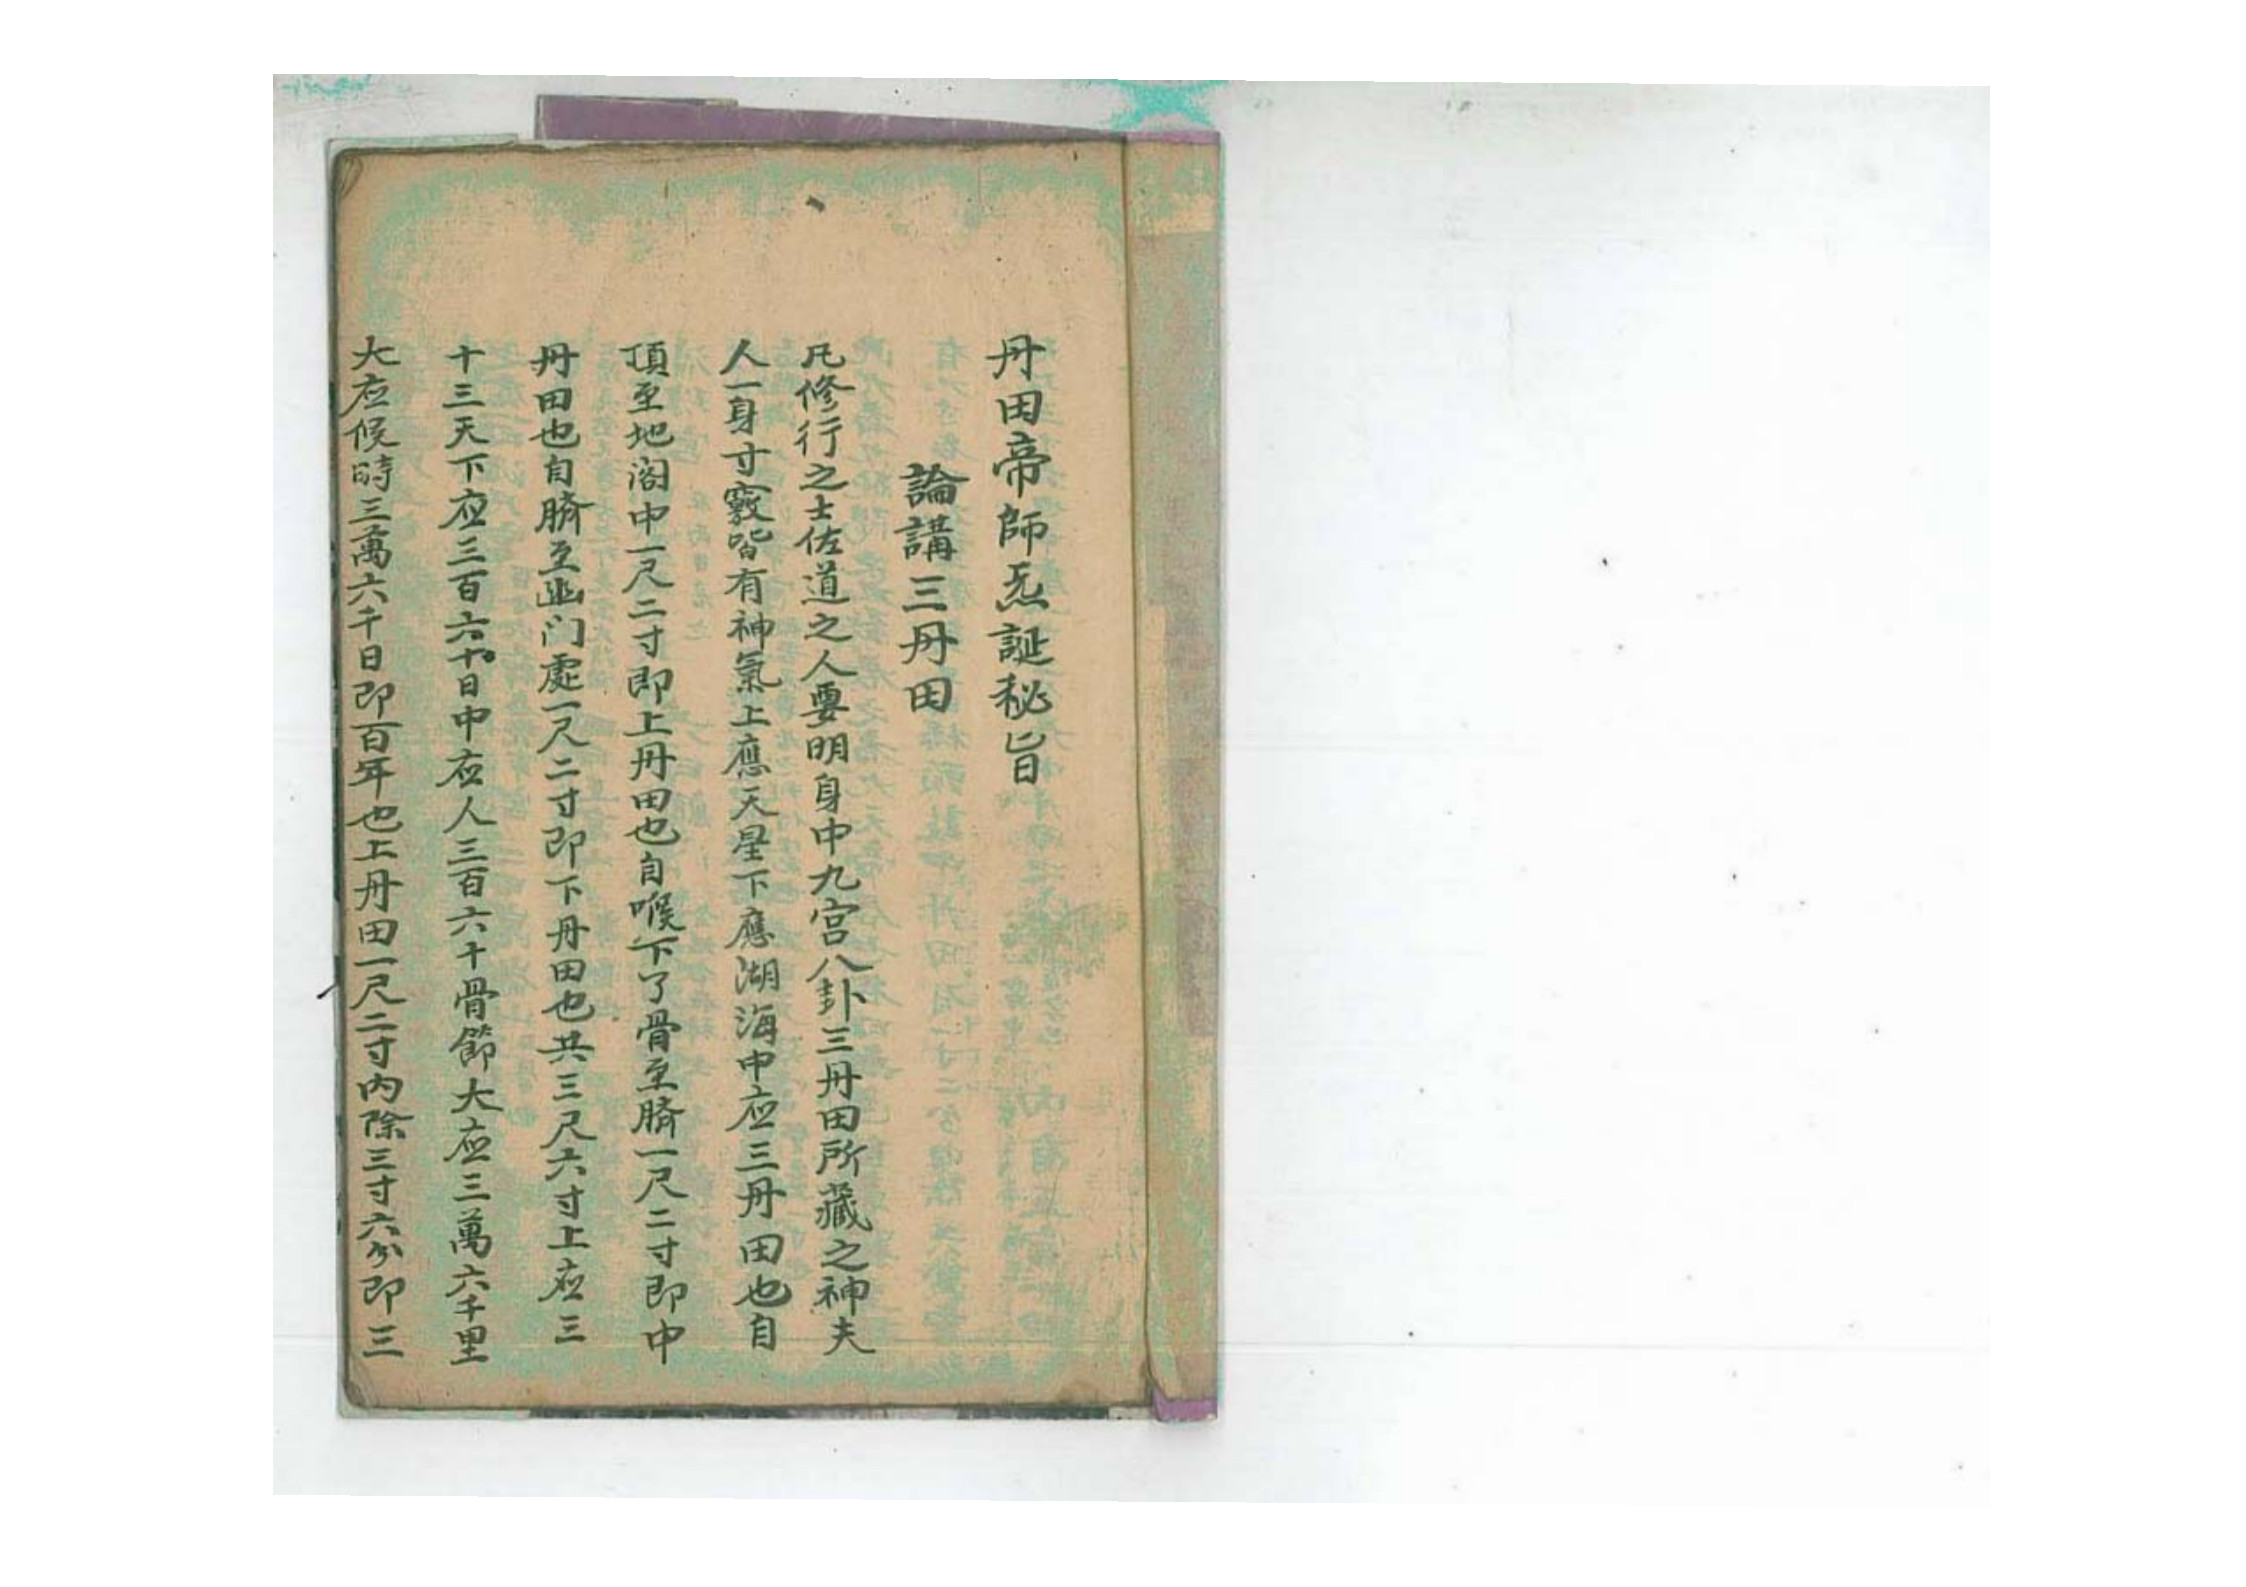 丹田帝師炁誕秘旨
論講三丹田
凡修行之士佐道之人要明身中九宫八卦三丹田所藏之神夫
人一身寸竅皆有神氣上應天星下應湖海中应三丹田也自
頂至地阁中一尺二寸即上丹田也自喉下了骨至臍一尺二寸即中
丹田也自臍至幽门處一尺二寸即下丹田也共三尺六寸上应三
十三天下应三百六十日中应人三百六十骨節大应三萬六千里
大应候時三萬六千日即百年也上丹田一尺二寸内除三寸六分即三